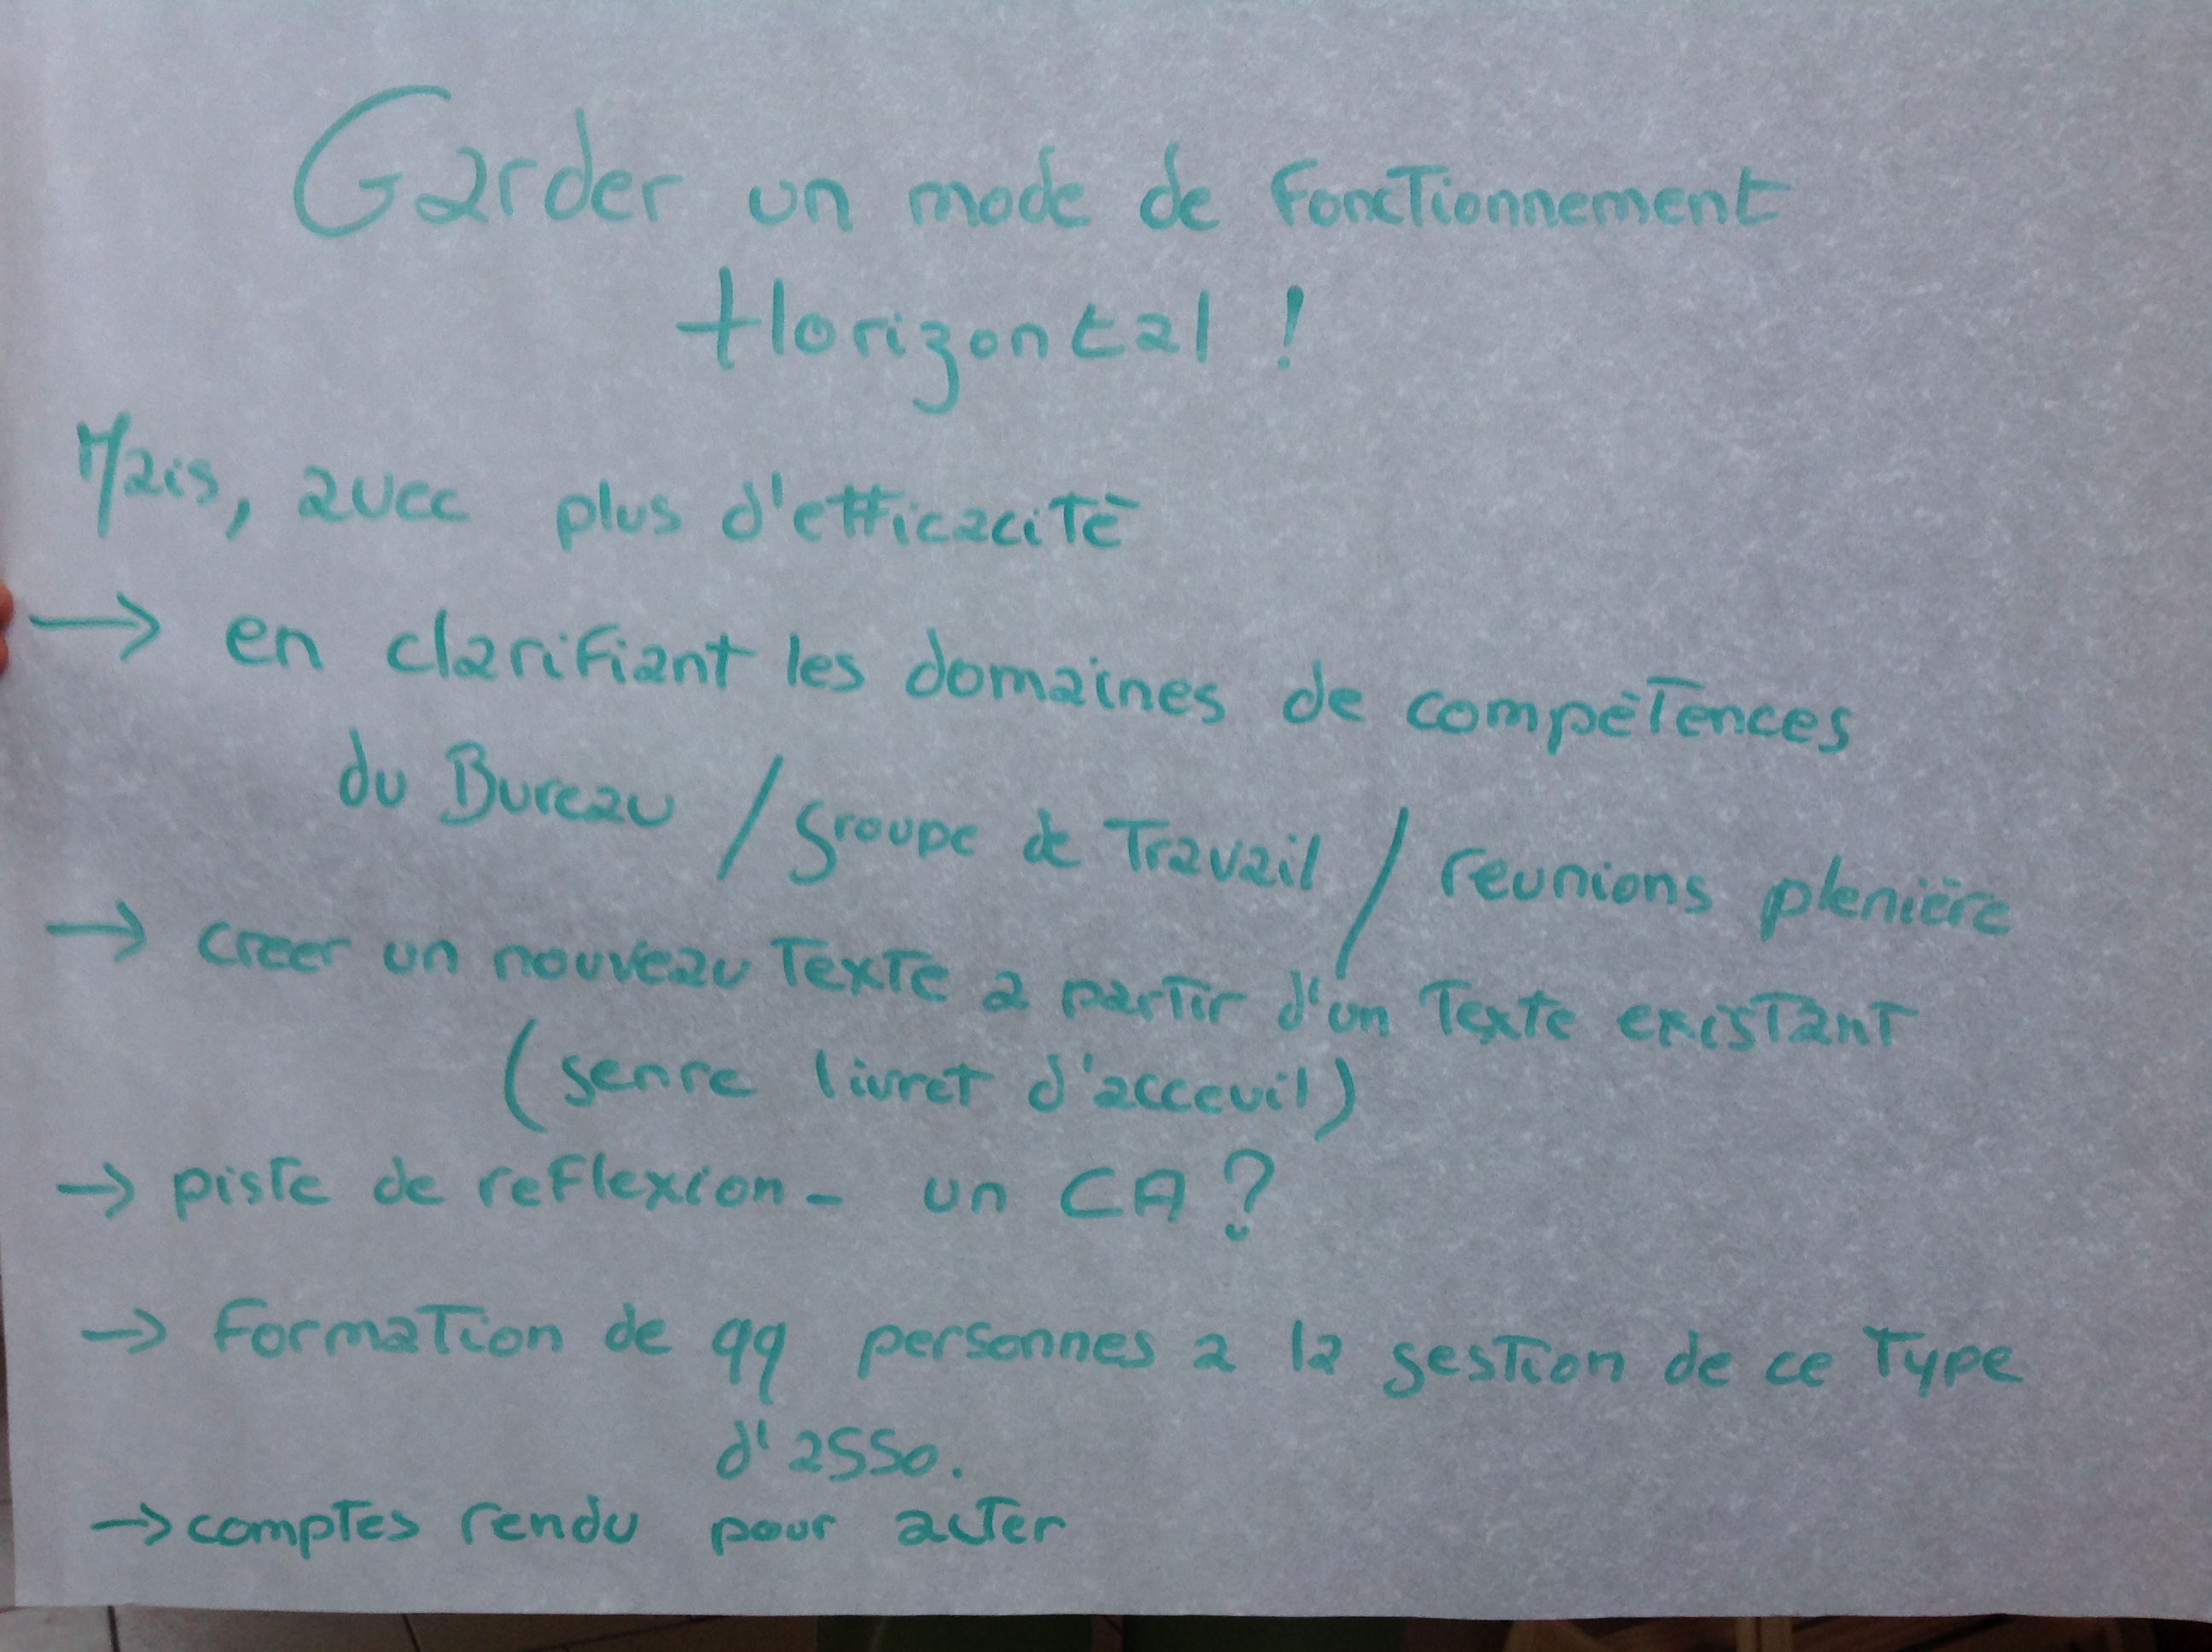 Garder un mode de fonctionnement
Horizontal !
Mais, avec plus d'efficacité
→ en clarifiant les domaines de compétences
du Bureau / groupe de Travail / reunions plenière
→ creer un nouveau Texte a partir d'un Texte existant
(genre livret d'acceuil)
→ piste de reflexion - un CA ?
→ Formation de qq personnes a la gestion de ce Type
d'asso.
→ comptes rendu pour acter